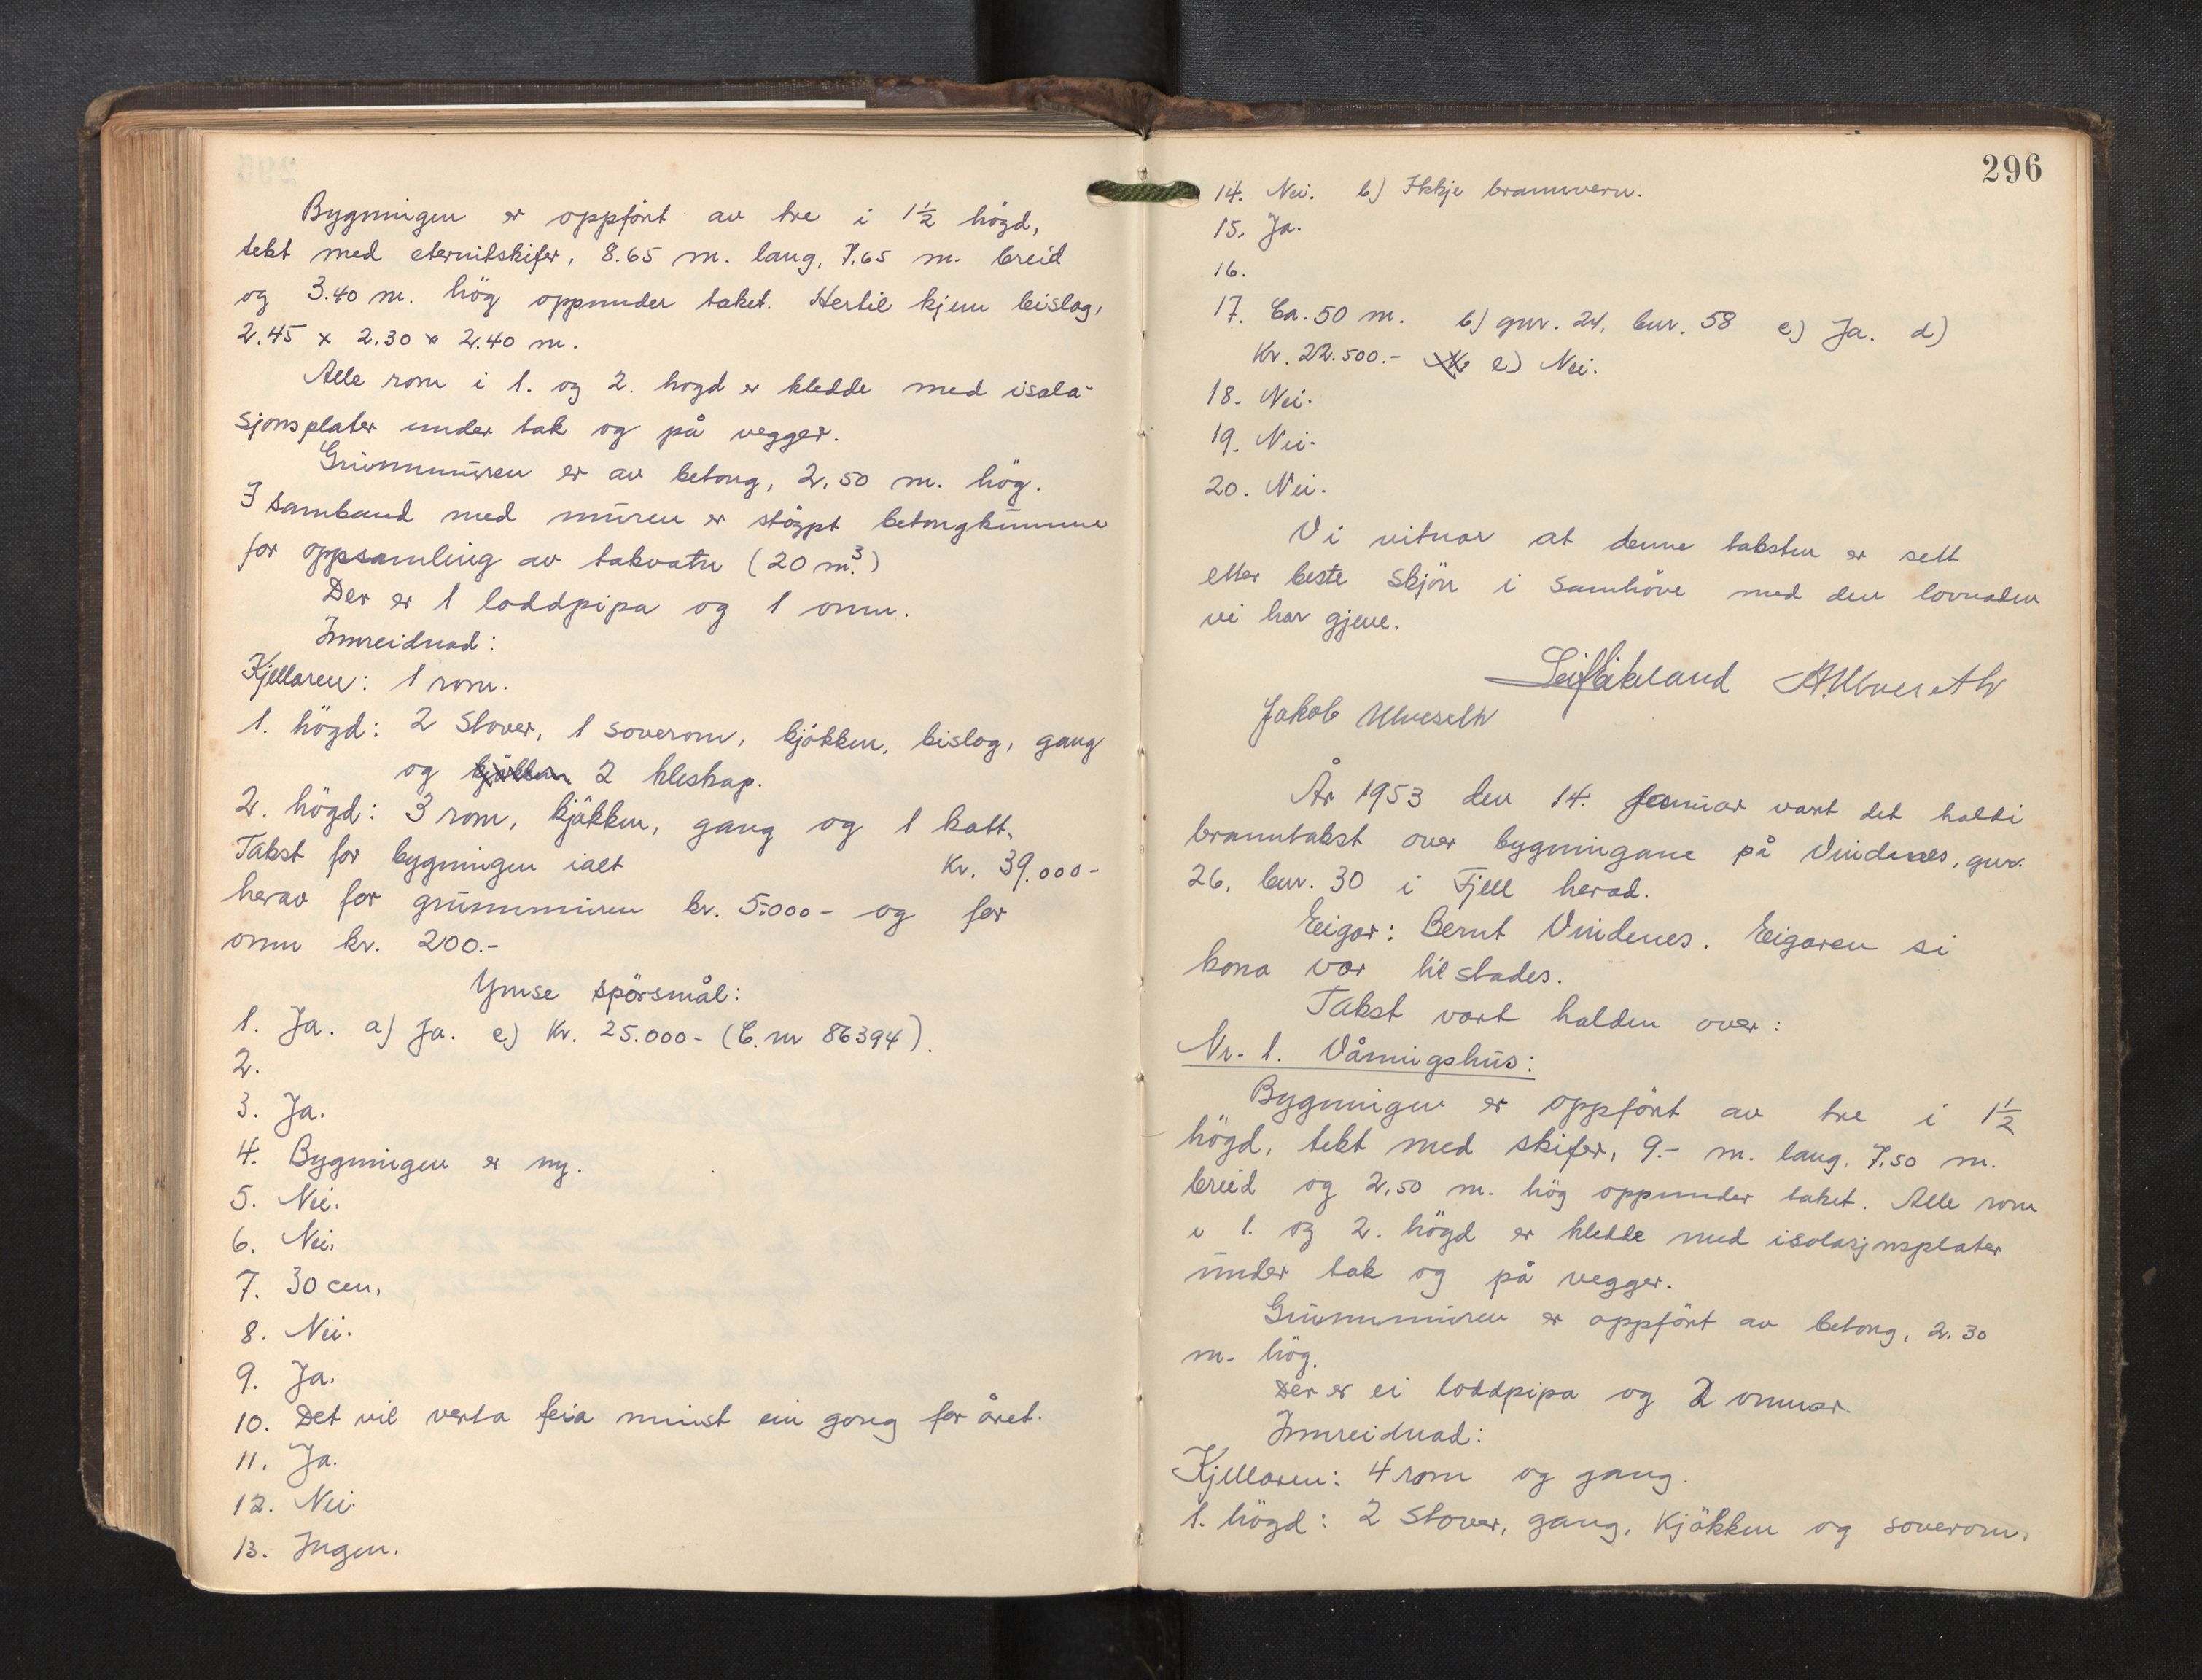 Bygningen er oppfört av tre i 1½ högd,
tekt med eternitskifer, 8.65 m. lang, 7.65 m. breid
og 3.40 m. hög oppunder taket. Hertil kjem bislag,
2.45 x 2.30 x 2.40 m.
Alle rom i 1. og 2. hogd er kledde med isola-
sjonsplater under tak og på vegger.
Grunnmuren er av betong, 2.50 m. hög.
I samband med muren er stöypt betongkumme
for oppsamling av takvatn (20 m³.)
Der er 1 loddpipa og 1 omn.
Innreidnad:
Kjellaren: 1 rom.
1. högd: 2 stover, 1 soverom, kjökken, bislag, gang
og kjökken 2 kleskap.
2. högd: 3 rom, kjökken, gang og 1 kott.
Takst for bygningen ialt Kr. 39.000-
herav for grunnmuren kr. 5.000- og for
omn kr. 200.-
Ymse spörsmål:
1. Ja. a) Ja. c) Kr. 25.000- (C. nr 86394).
2.
3. Ja.
4. Bygningen er ny.
5. Nei.
6. Nei.
7. 30 cm.
8. Nei.
9. Ja.
10. Det vil verta feia minst ein gong for året.
11. Ja.
12. Nei.
13. Ingen.
296
14. Nei. b) Ikkje brannvern.
15. Ja.
16.
17. Ca. 50 m. b) gnr. 24, bnr. 58 c) Ja. d)
Kr. 22.500.- e) Nei.
18. Nei.
19. Nei.
20. Nei.
Vi vitnar at denne taksten er sett
etter beste skjön i samhöve med den lovnaden
vi har gjeve.
Leif Eikeland A. Ulveseth
Jakob Ulveseth
År 1953 den 14. januar vart det haldi
branntakst over bygningane på Vindenes, gnr.
26, bnr. 30 i Fjell herad.
Eigar: Bernt Vindenes. Eigaren si
kona var tilstades.
Takst vart halden over:
Nr. 1. Våningshus:
Bygningen er oppfört av tre i 1½
högd, tekt med skifer, 9.- m. lang, 7.50 m.
breid og 2,50 m. hög oppunder taket. Alle rom
i 1. og 2. högd er kledde med isolasjnsplater
under tak og på vegger.
Grunnmuren er oppfört av betong, 2.30
m. hög.
Der er ei loddpipa og 2 omnar.
Innreidnad:
Kjellaren: 4 rom og gang.
1. högd: 2 stover, gang, kjökken og soverom.